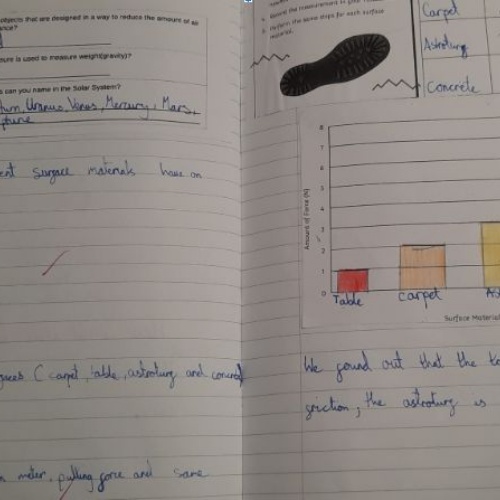 objects that are designed in a way to reduce the amount of air
is used to measure weight(gravity)?
can you name in the Solar System?
Uranus, Venus, Mercury, Mars,
surface materials have on
(carpet, table, astroturf and concrete
meter, pulling force and same
Record the measurement in your
Perform the same steps for each surface
material.
Carpet
Astroturf
Concrete
Amount of Force (N)
8
7
6
5
4
3
2
1
0
Table
carpet
Surface Material
We found out that the
friction, the astroturf is